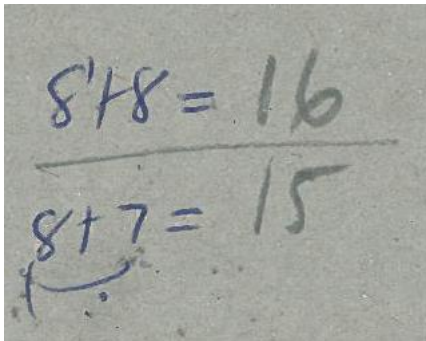 8+8= 16
8+7= 15